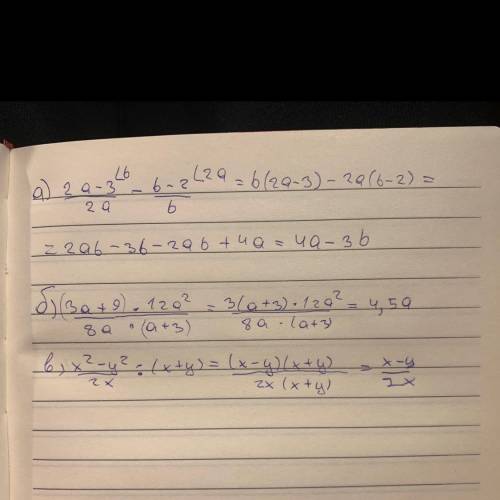 а) (2a-3)/(2a) ⌊b - (b-2)/b ⌊2a = b(2a-3) - 2a(b-2) =
= 2ab - 3b - 2ab + 4a = 4a - 3b
б) ((3a+9) · 12a²)/(8a · (a+3)) = (3(a+3) · 12a²)/(8a · (a+3)) = 4,5a
в) (x²-y²)/(2x) : (x+y) = ((x-y)(x+y))/(2x(x+y)) = (x-y)/(2x)